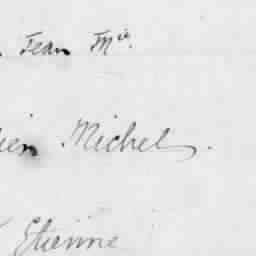 Jean Mie.
ien Michel.
Etienne